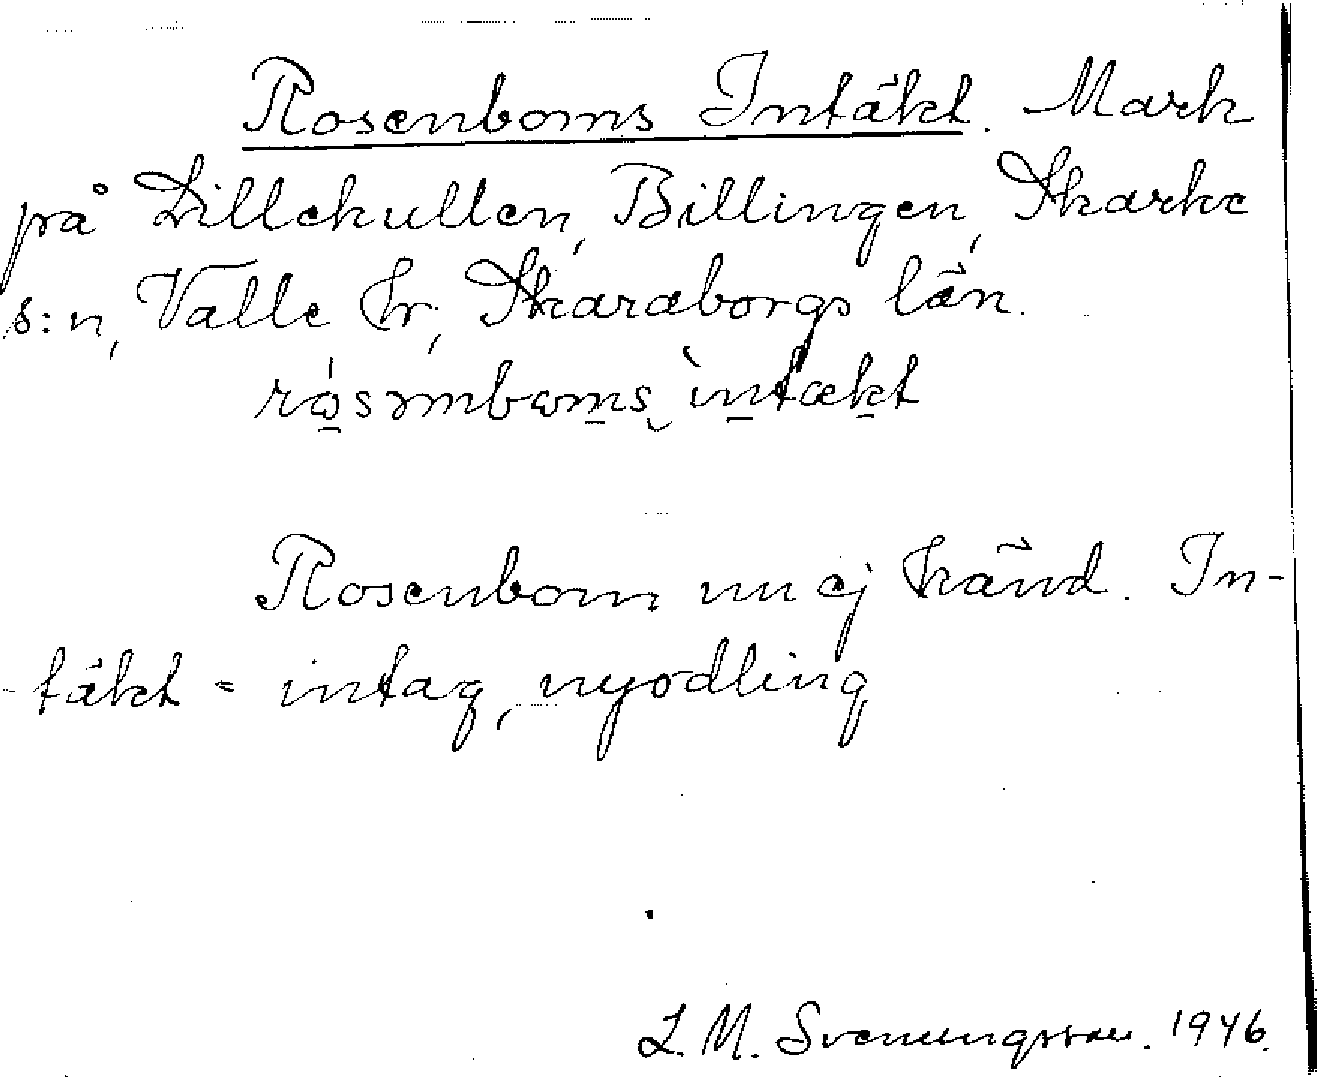 Rosenboms Intäkt. Mark
på Lillekullen, Billingen, Skarke
s:n, Valle hr, Skaraborgs län.
Rosenbom nu ej känd. In-
täkt = intag, nyodling
L. M. Svenungsson. 1946.